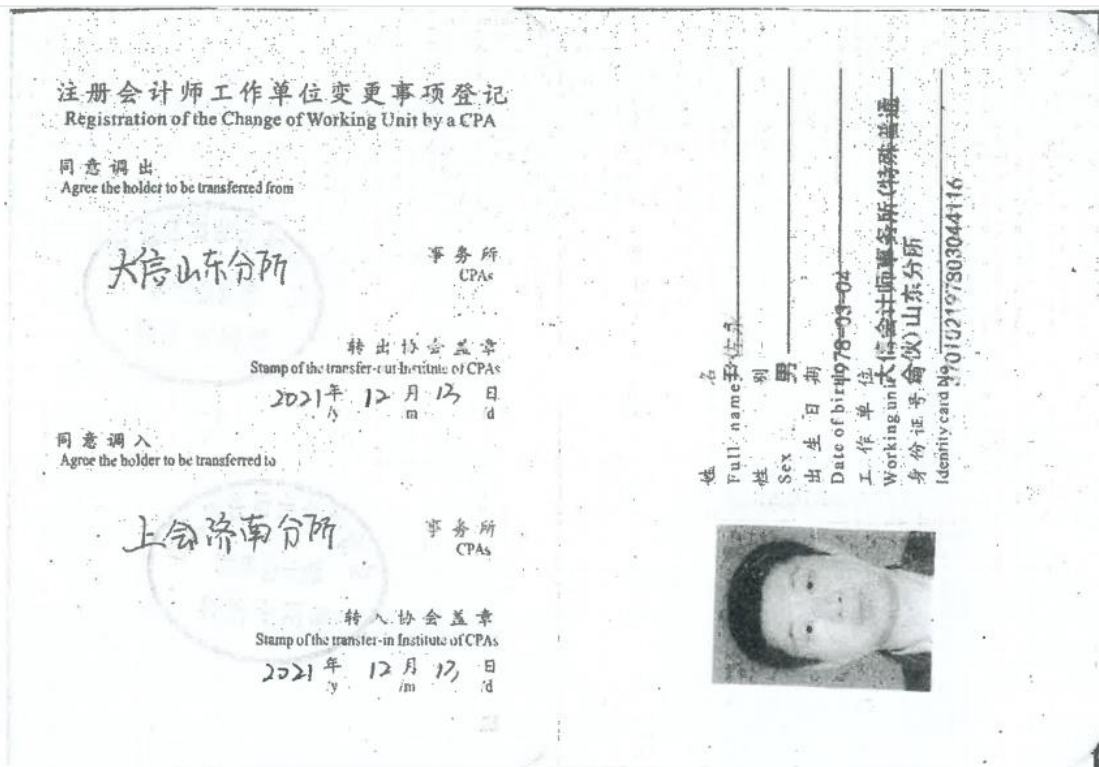 注册会计师工作单位变更事项登记
Registration of the Change of Working Unit by a CPA
同意调出
Agree the holder to be transferred from
大信山东分所
事务所
CPAs
转出协会盖章
Stamp of the transfer-out Institute of CPAs
2021年 12月 13日
/y /m /d
同意调入
Agree the holder to be transferred to
上会济南分所
事务所
CPAs
转入协会盖章
Stamp of the transfer-in Institute of CPAs
2021年 12月 13日
/y /m /d
姓名
Full name
性别
Sex 男
出生日期
Date of birth 1978-03-04
工作单位
Working unit 大信会计师事务所(特殊普通
合伙)山东分所
身份证号码
Identity card No. 370102197803044116